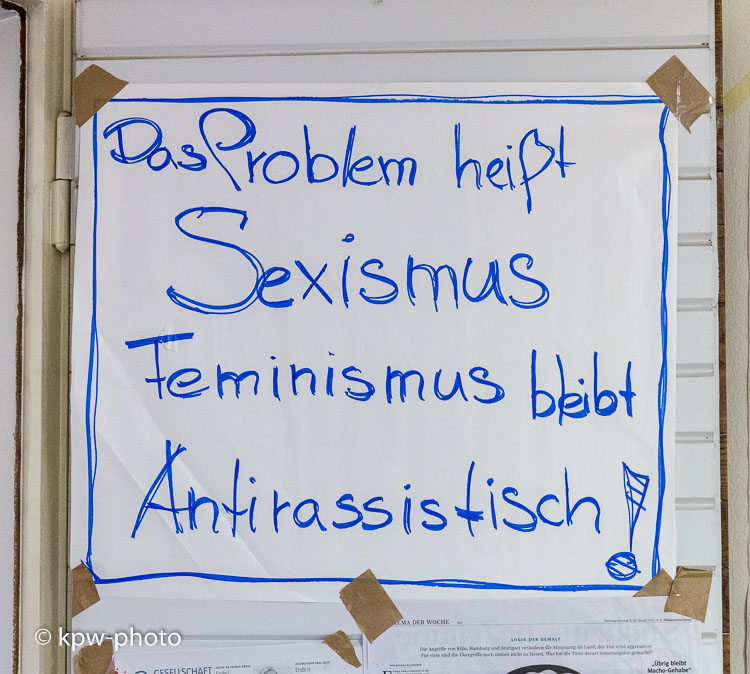 Das Problem heißt
Sexismus
Feminismus bleibt
Antirassistisch!
© kpw-photo
THEMA DER WOCHE
LOGIK DER GEWALT
Die Angriffe von Köln, Hamburg und Stuttgart verändern die Stimmung im Land, der Ton wird aggressiver.
Für viele sind die Übergriffe noch immer nicht zu fassen. Was hat die Täter derart herausgefordert?
GESELLSCHAFT
Ende II
„Übrig bleibt
Macho-Gehabe“